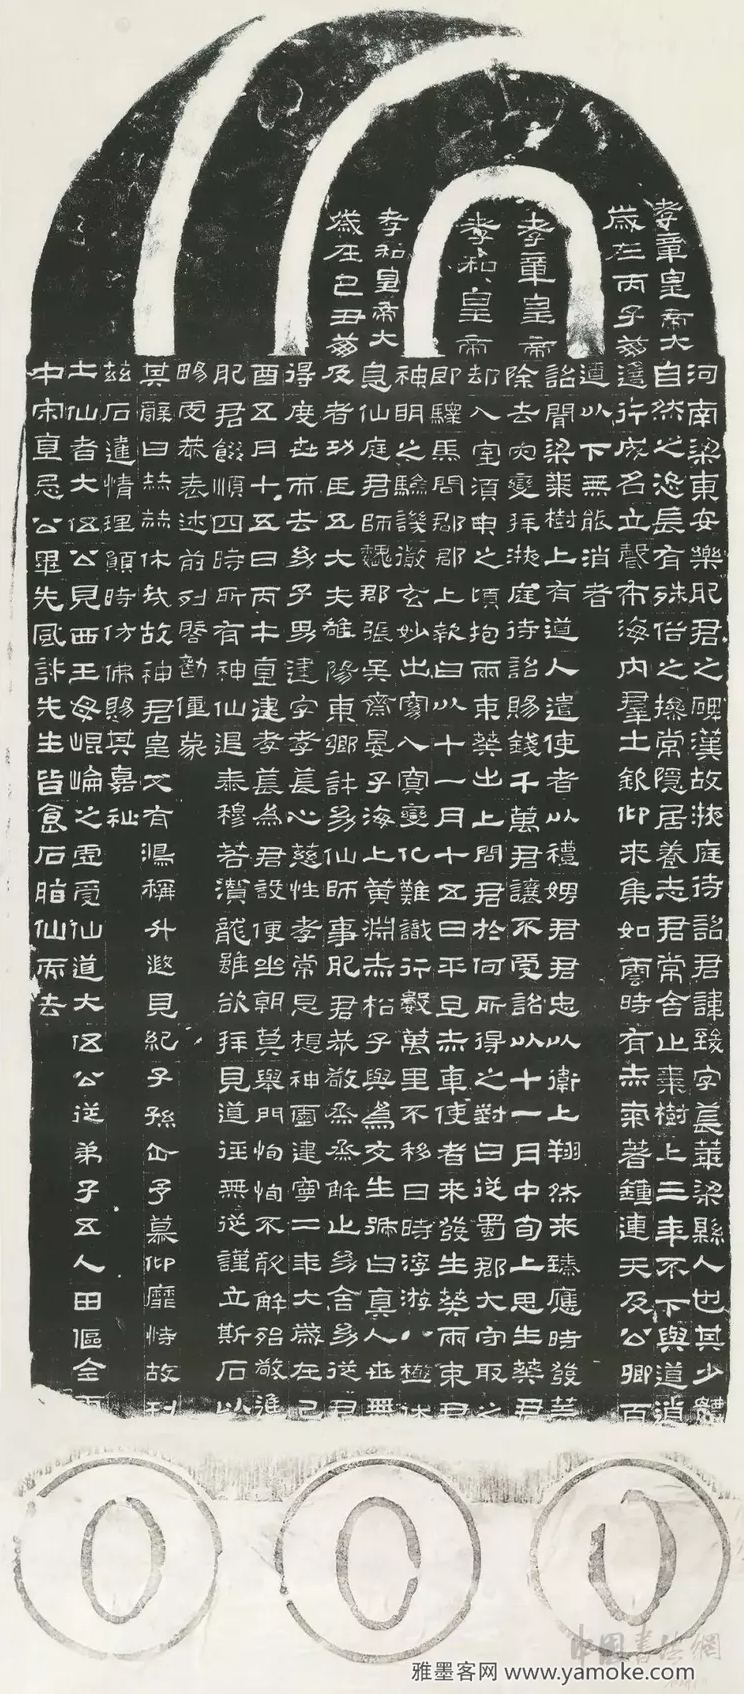 孝章皇帝
孝和皇帝
孝章皇帝大
歲在丙子崩
孝和皇帝大
歲在己丑崩
河南梁東安樂肥君之碑漢故掖庭待詔君諱致字萇華梁縣人也其少體
自然之恣長有殊俗之操常隱居養志君常舍止棗樹上三年不下與道逍
遙行成名立聲布海內羣士欽仰來集如雲時有赤氣著鍾連天及公卿百
遼以下無能消者
詔聞梁棗樹上有道人遣使者以禮娉君君忠以衛上翔然來臻應時發筭
除去灾變拜掖庭待詔賜錢千萬君讓不受詔以十一月中旬上思生葵君
却入室須臾之頃抱兩束葵出上問君於何所得之對曰從蜀郡大守取之
即驛馬問郡郡上報曰以十一月十五日平旦赤車使者來發生葵兩束君
神明之驗譏徹玄妙出窈入冥變化難識行數萬里不移日時浮游八極休
息仙庭君師魏郡張吳齋晏子海上黃淵赤松子與為友生號曰真人世無
及者功臣五大夫雒陽東鄉許幼仙師事肥君恭敬烝烝解止幼舍幼從君
得度世而去幼子男建字孝萇心慈性孝常思想神靈建寧二年大歲在己
酉五月十五日丙午直建孝萇為君設便坐朝莫舉門恂恂不敢解殆敬進
肥君餟順四時所有神仙退泰穆若潛龍雖欲拜見道徑無從謹立斯石以
暢虔恭表述前列啓勸僮蒙
其辭曰赫赫休哉故神君皇又有鴻稱升遐見紀子孫企予慕仰靡恃故刊
茲石達情理願時仿佛賜其嘉祉
土仙者大伍公見西王母崐崘之虛受仙道大伍公從弟子五人田傴全雨
中宋直忌公畢先風許先生皆食石脂仙而去
中国书法網
雅墨客网 www.yamoke.com